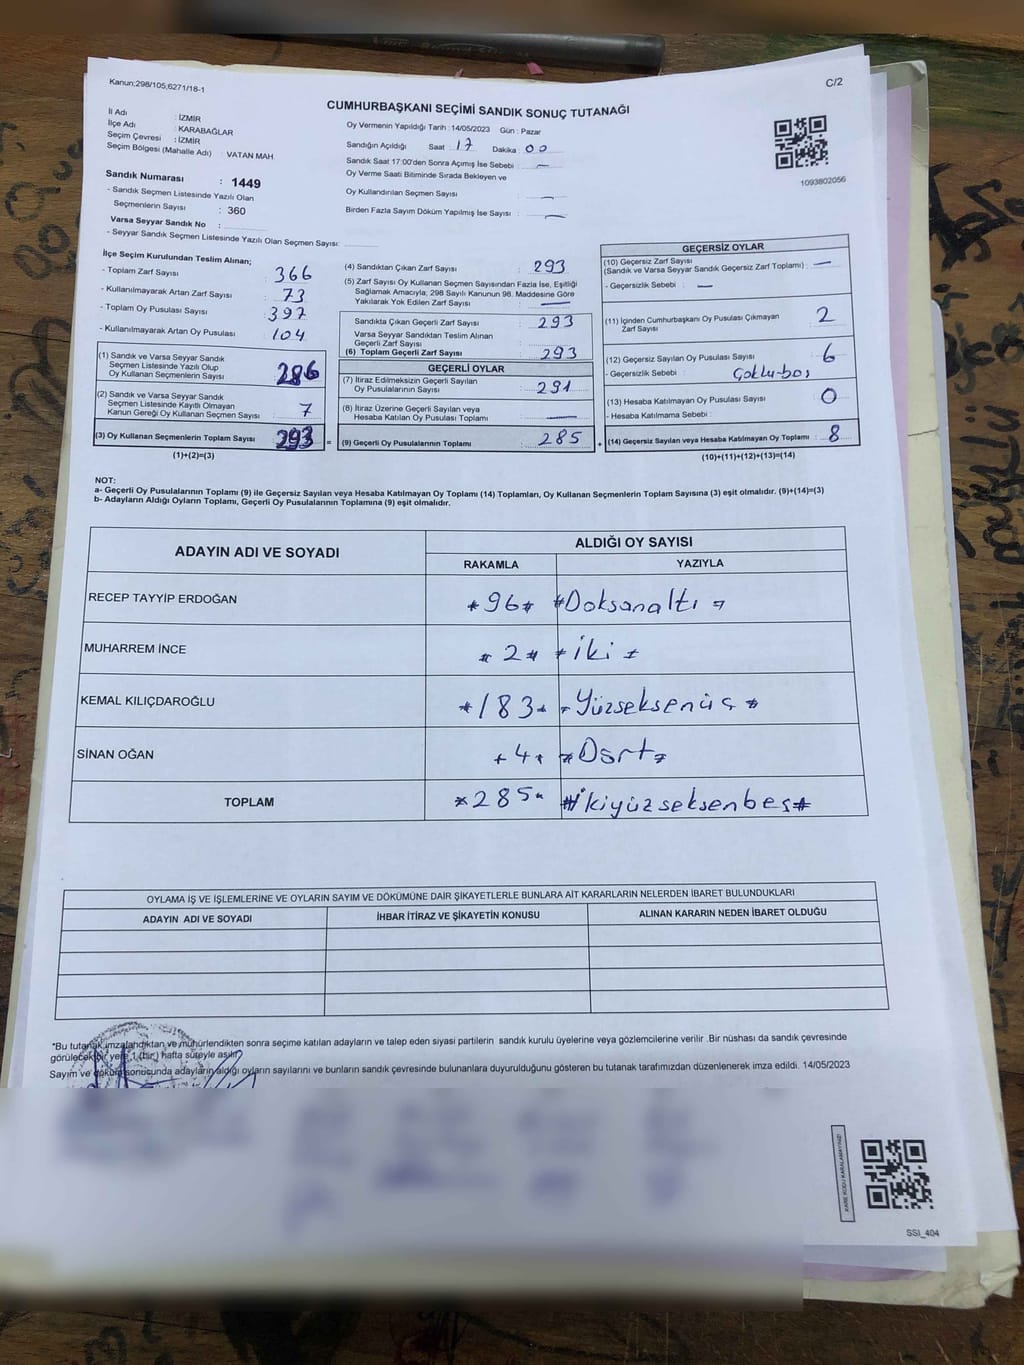 Kanun;298/105,6271/18-1
C/2
CUMHURBAŞKANI SEÇİMİ SANDIK SONUÇ TUTANAĞI
İl Adı : İZMİR
İlçe Adı : KARABAĞLAR
Seçim Çevresi : İZMİR
Seçim Bölgesi (Mahalle Adı) : VATAN MAH.
Oy Vermenin Yapıldığı Tarih : 14/05/2023 Gün : Pazar
Sandığın Açıldığı Saat 17 Dakika 00
Sandık Saat 17:00'den Sonra Açımış İse Sebebi : —
Oy Verme Saati Bitiminde Sırada Bekleyen ve
Oy Kullandırılan Seçmen Sayısı : —
Birden Fazla Sayım Döküm Yapılmış İse Sayısı : —
1093802056
Sandık Numarası : 1449
- Sandık Seçmen Listesinde Yazılı Olan
Seçmenlerin Sayısı : 360
Varsa Seyyar Sandık No :
- Seyyar Sandık Seçmen Listesinde Yazılı Olan Seçmen Sayısı:
İlçe Seçim Kurulundan Teslim Alınan;
- Toplam Zarf Sayısı : 366
- Kullanılmayarak Artan Zarf Sayısı : 73
- Toplam Oy Pusulası Sayısı : 397
- Kullanılmayarak Artan Oy Pusulası : 104
(1) Sandık ve Varsa Seyyar Sandık
Seçmen Listesinde Yazılı Olup
Oy Kullanan Seçmenlerin Sayısı : 286
(2) Sandık ve Varsa Seyyar Sandık
Seçmen Listesinde Kayıtlı Olmayan
Kanun Gereği Oy Kullanan Seçmen Sayısı : 7
(3) Oy Kullanan Seçmenlerin Toplam Sayısı : 293
(1)+(2)=(3)
(4) Sandıktan Çıkan Zarf Sayısı : 293
(5) Zarf Sayısı Oy Kullanan Seçmen Sayısından Fazla İse, Eşitliği
Sağlamak Amacıyla, 298 Sayılı Kanunun 98. Maddesine Göre
Yakılarak Yok Edilen Zarf Sayısı : —
Sandıkta Çıkan Geçerli Zarf Sayısı : 293
Varsa Seyyar Sandıktan Teslim Alınan
Geçerli Zarf Sayısı
(6) Toplam Geçerli Zarf Sayısı : 293
GEÇERLİ OYLAR
(7) İtiraz Edilmeksizin Geçerli Sayılan
Oy Pusulalarının Sayısı : 291
(8) İtiraz Üzerine Geçerli Sayılan veya
Hesaba Katılan Oy Pusulası Toplamı : —
= (9) Geçerli Oy Pusulalarının Toplamı : 285 +
GEÇERSİZ OYLAR
(10) Geçersiz Zarf Sayısı
(Sandık ve Varsa Seyyar Sandık Geçersiz Zarf Toplamı) : —
- Geçersizlik Sebebi : —
(11) İçinden Cumhurbaşkanı Oy Pusulası Çıkmayan
Zarf Sayısı : 2
(12) Geçersiz Sayılan Oy Pusulası Sayısı : 6
- Geçersizlik Sebebi : Çoklu-boş
(13) Hesaba Katılmayan Oy Pusulası Sayısı : 0
- Hesaba Katılmama Sebebi :
(14) Geçersiz Sayılan veya Hesaba Katılmayan Oy Toplamı : 8
(10)+(11)+(12)+(13)=(14)
NOT:
a- Geçerli Oy Pusulalarının Toplamı (9) ile Geçersiz Sayılan veya Hesaba Katılmayan Oy Toplamı (14) Toplamları, Oy Kullanan Seçmenlerin Toplam Sayısına (3) eşit olmalıdır. (9)+(14)=(3)
b- Adayların Aldığı Oyların Toplamı, Geçerli Oy Pusulalarının Toplamına (9) eşit olmalıdır.
ADAYIN ADI VE SOYADI ALDIĞI OY SAYISI
RAKAMLA YAZIYLA
RECEP TAYYİP ERDOĞAN *96* #Doksanaltı#
MUHARREM İNCE #2# #iki#
KEMAL KILIÇDAROĞLU *183* #Yüzseksenüç#
SİNAN OĞAN *4* #Dört#
TOPLAM *285* #ikiyüzseksenbeş#
OYLAMA İŞ VE İŞLEMLERİNE VE OYLARIN SAYIM VE DÖKÜMÜNE DAİR ŞİKAYETLERLE BUNLARA AİT KARARLARIN NELERDEN İBARET BULUNDUKLARI
ADAYIN ADI VE SOYADI İHBAR İTİRAZ VE ŞİKAYETİN KONUSU ALINAN KARARIN NEDEN İBARET OLDUĞU
*Bu tutanak imzalandıktan ve mühürlendikten sonra seçime katılan adayların ve talep eden siyasi partilerin sandık kurulu üyelerine veya gözlemcilerine verilir .Bir nüshası da sandık çevresinde
görülecek bir yere 1 (bir) hafta süreyle asılır.
Sayım ve döküm sonucunda adayların aldığı oyların sayılarını ve bunların sandık çevresinde bulunanlara duyurulduğunu gösteren bu tutanak tarafımızdan düzenlenerek imza edildi. 14/05/2023
KARE KODU KARALAMAYINIZ!
SSI_404